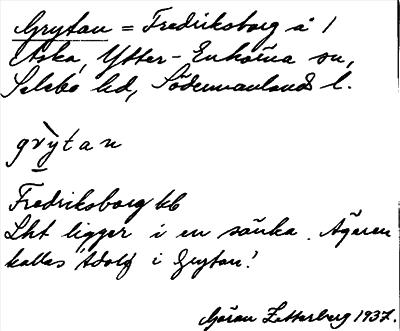 Grytan = Fredriksborg å 1
Aska, Ytter-Enhörna sn,
Selebo hd, Södermanlands l.
grỳtan
Fredriksborg kb
Lht ligger i en sänka. Ägaren
kallas 'Adolf i Grytan'.
Göran Zetterberg 1937.